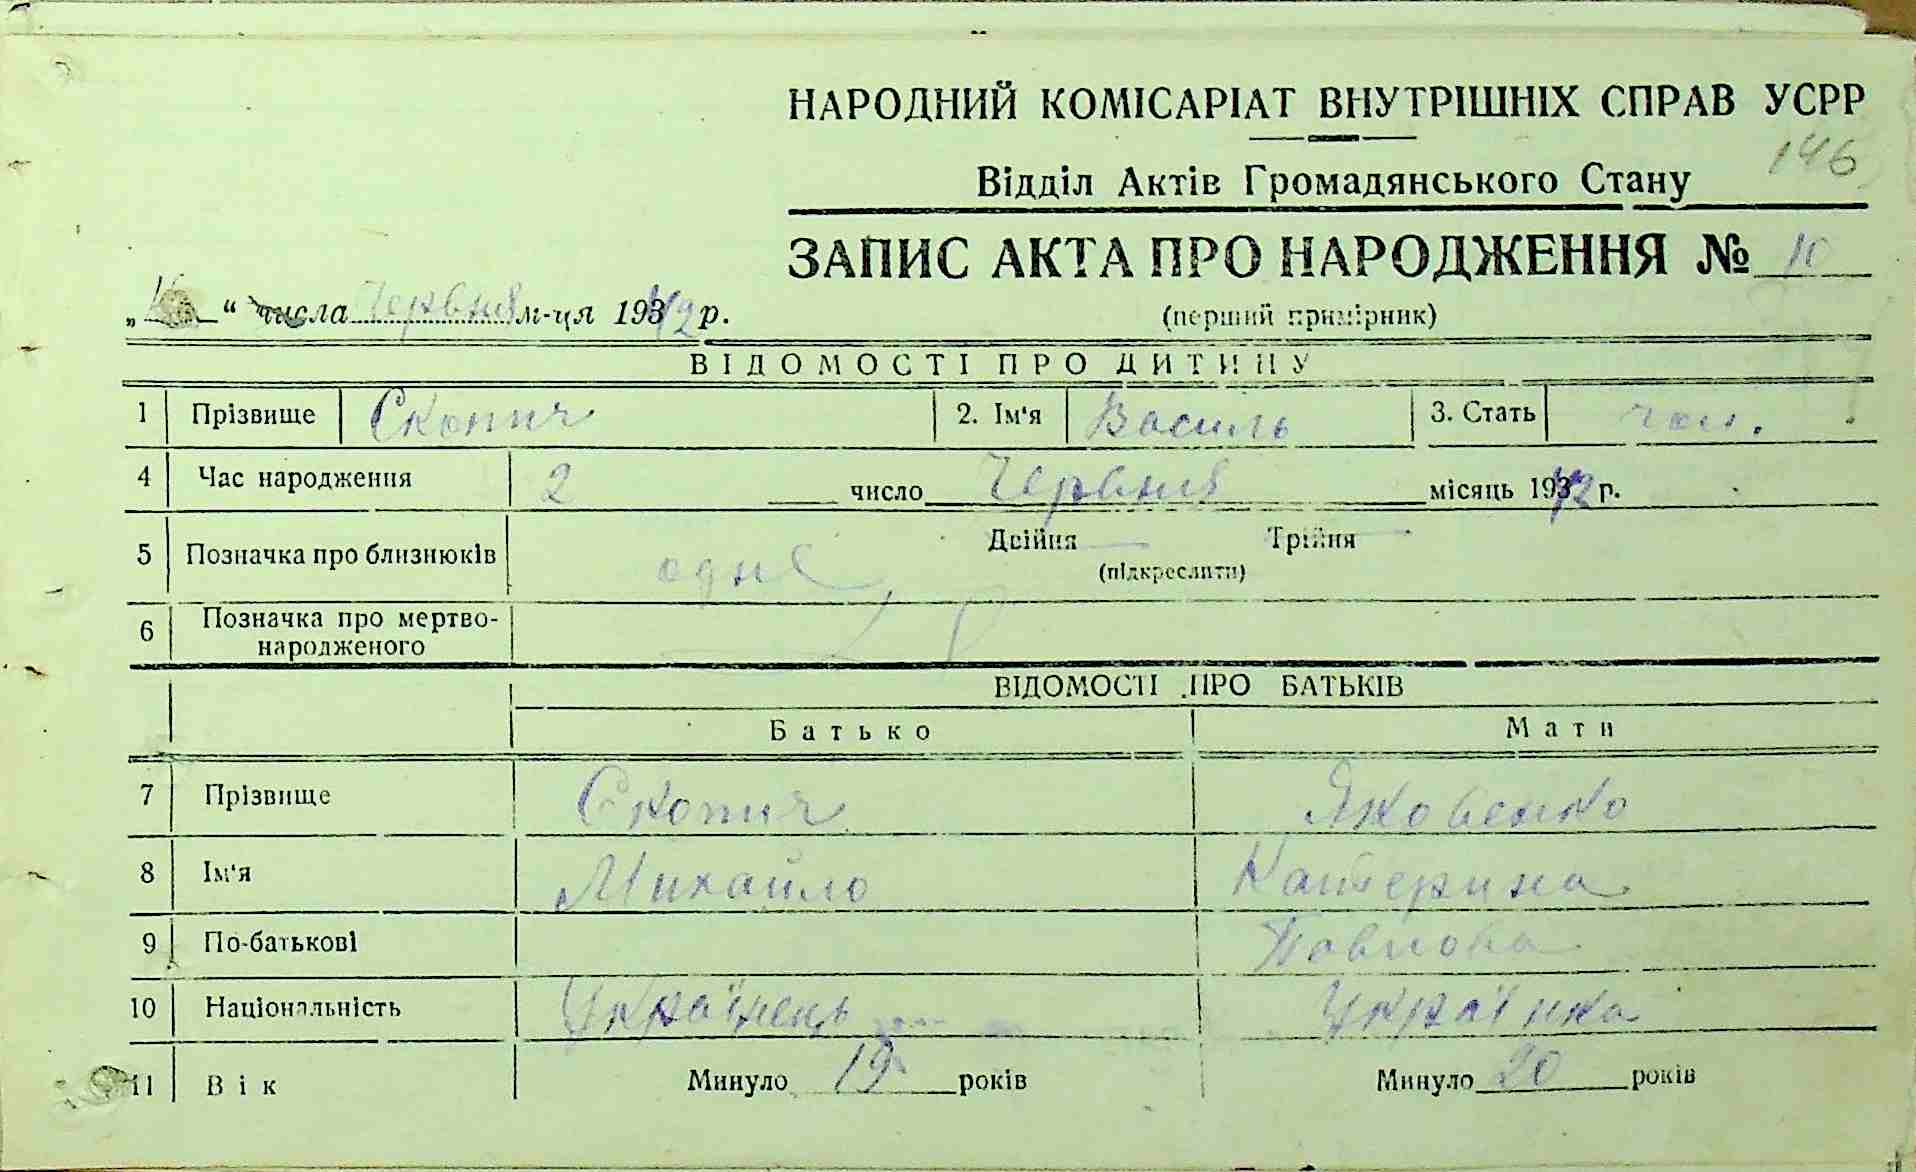 НАРОДНИЙ КОМІСАРІАТ ВНУТРІШНІХ СПРАВ УСРР
146
Відділ Актів Громадянського Стану
ЗАПИС АКТА ПРО НАРОДЖЕННЯ № 10
„ “ числа Червня м-ця 1942 р.
(перший примірник)
ВІДОМОСТІ ПРО ДИТИНУ
1 Прізвище Скопич 2. Ім'я Василь 3. Стать чол.
4 Час народження 2 число Червня місяць 1942 р.
5 Позначка про близнюків одне Двійня Трійня
(підкреслити)
6 Позначка про мертво-
народженого
ВІДОМОСТІ ПРО БАТЬКІВ
Батько Мати
7 Прізвище Скопич Яковенко
8 Ім'я Михайло Катерина
9 По-батькові Павлова
10 Національність Українець Українка
11 Вік Минуло 19 років Минуло 20 років